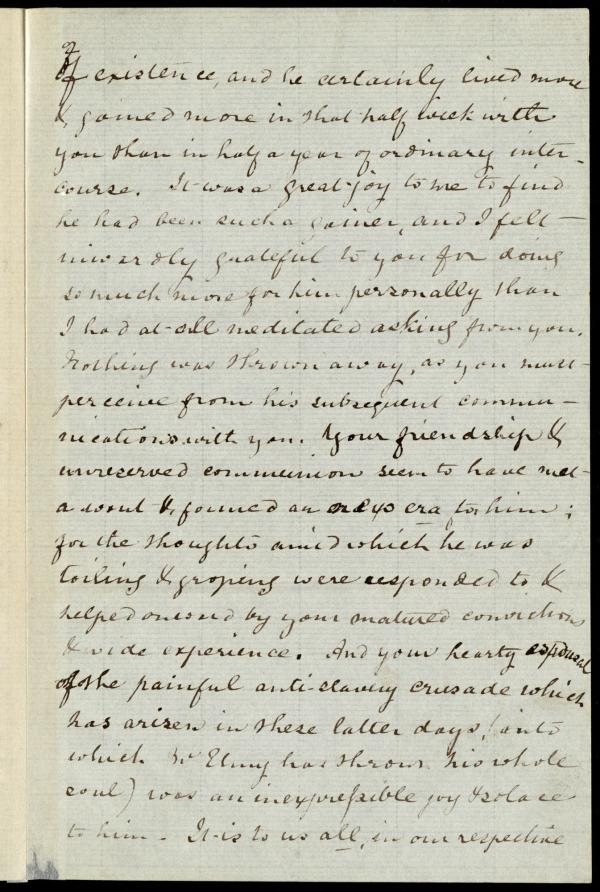 2
of existence, and he certainly lived more
& gained more in that half week with
you than in half a year of ordinary inter-
course. It was a great joy to me to find
he had been such a gainer, and I felt
inwardly grateful to you for doing
so much more for him personally than
I had at all meditated asking from you.
Nothing was thrown away, as you must
perceive from his subsequent commu-
nications with you. Your friendship &
unreserved communion seem to have met
a want & formed an new era to him;
for the thoughts amid which he was
toiling & groping were responded to &
helped onward by your matured convictions
& wide experience. And your hearty espousal
of the painful anti-slavery crusade which
has arisen in these latter days, (into
which Mr Elmy has thrown his whole
soul) was an inexpressible joy & solace
to him - It is to us all, in our respective